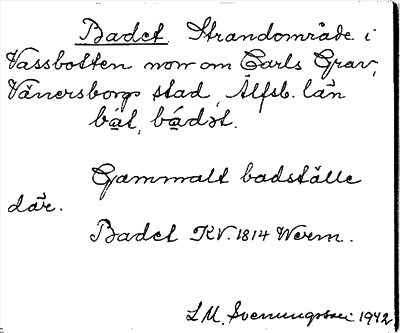 Badet. Strandområde i
Vassbotten norr om Carls Grav,
Vänersborgs stad, Älfsb. län
bàt, bádət.
Gammalt badställe
där.
Badet KV. 1814 Werm.
L M, Svenungsson 1942